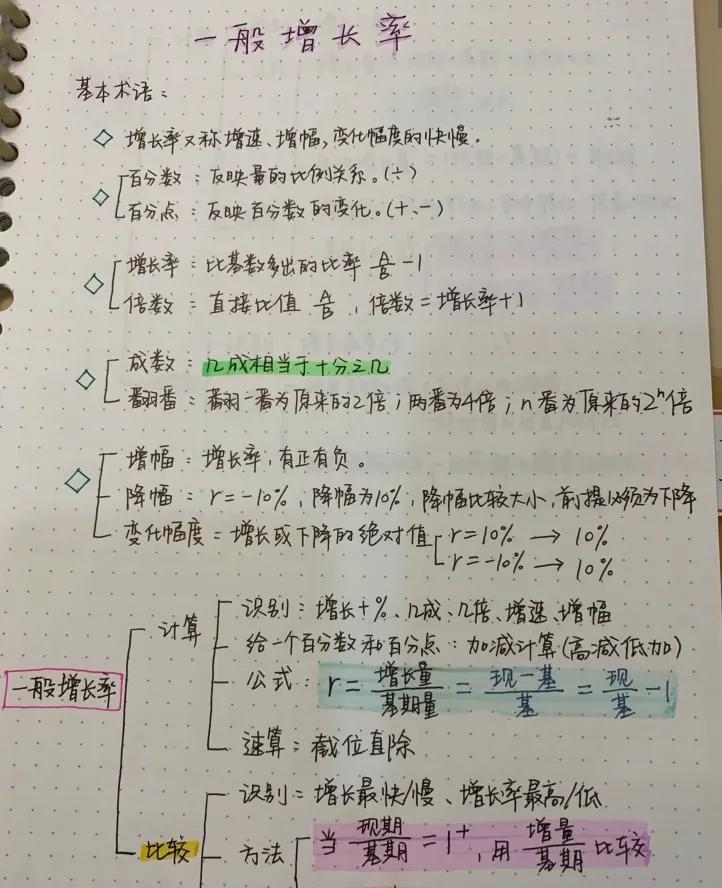 一般增长率
基本术语：
◇ 增长率又称增速、增幅,变化幅度的快慢。
◇ 百分数：反映量的比例关系。(÷)
百分点：反映百分数的变化。(+、-)
◇ 增长率：比基数多出的比率 A/B -1
倍数：直接比值 A/B ，倍数=增长率+1
◇ 成数：几成相当于十分之几
翻番：翻一番为原来的2倍；两番为4倍；n番为原来的2ⁿ倍
◇ 增幅：增长率,有正有负。
降幅：r=-10%，降幅为10%，降幅比较大小,前提必须为下降
变化幅度=增长或下降的绝对值 r=10% → 10%
r=-10% → 10%
一般增长率
计算
识别：增长+%、几成、几倍、增速、增幅
给一个百分数和百分点：加减计算(高减低加)
公式：r=增长量/基期量=现-基/基=现/基-1
速算：截位直除
比较
识别：增长最快/慢、增长率最高/低
方法 当 现期/基期=1⁺,用 增量/基期 比较